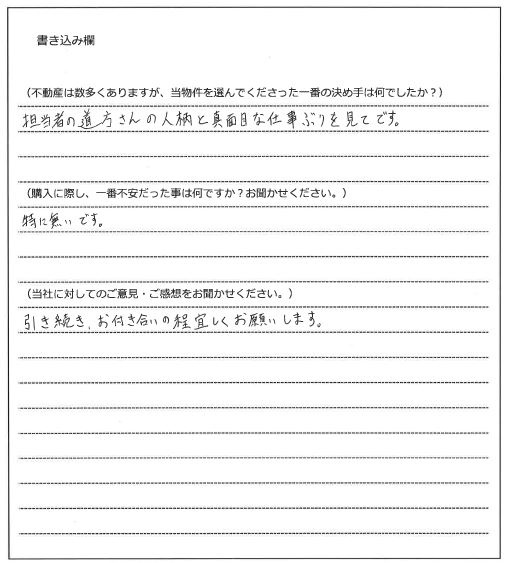 書き込み欄
(不動産は数多くありますが、当物件を選んでくださった一番の決め手は何でしたか?)
担当者の道方さんの人柄と真面目な仕事ぶりを見てです。
(購入に際し、一番不安だった事は何ですか?お聞かせください。)
特に無いです。
(当社に対してのご意見・ご感想をお聞かせください。)
引き続き、お付き合いの程宜しくお願いします。